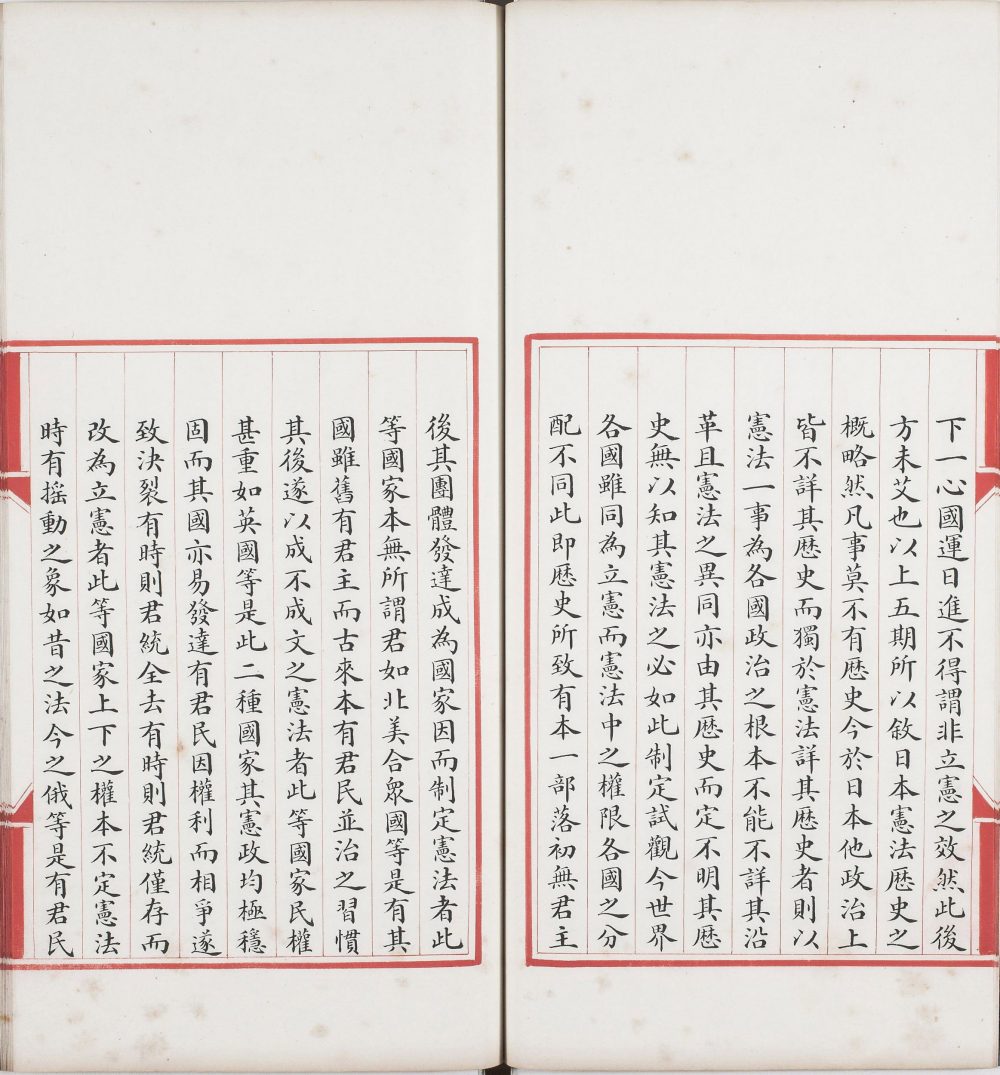 下一心國運日進不得謂非立憲之效然此後
方未艾也以上五期所以敘日本憲法歷史之
概略然凡事莫不有歷史今於日本他政治上
皆不詳其歷史而獨於憲法詳其歷史者則以
憲法一事為各國政治之根本不能不詳其沿
革且憲法之異同亦由其歷史而定不明其歷
史無以知其憲法之必如此制定試觀今世界
各國雖同為立憲而憲法中之權限各國之分
配不同此即歷史所致有本一部落初無君主
後其團體發達成為國家因而制定憲法者此
等國家本無所謂君如北美合眾國等是有其
國雖舊有君主而古來本有君民並治之習慣
其後遂以成不成文之憲法者此等國家民權
甚重如英國等是此二種國家其憲政均極穩
固而其國亦易發達有君民因權利而相爭遂
致決裂有時則君統全去有時則君統僅存而
改為立憲者此等國家上下之權本不定憲法
時有搖動之象如昔之法今之俄等是有君民